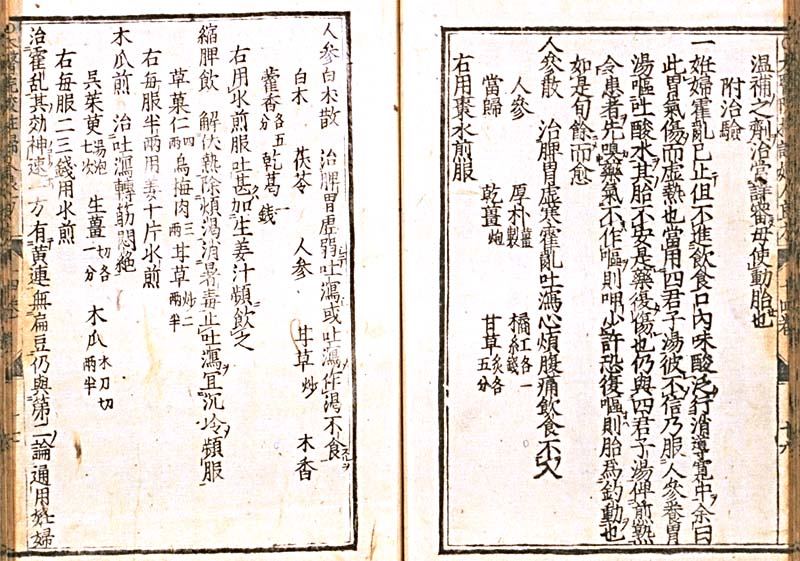 温補之劑治宜詳審毋使動胎也
附治驗
一妊婦霍亂已止但不進飲食口内味酸泛行消導寬中余曰
此胃氣傷而虛熱也當用四君子湯彼不信乃服人參養胃
湯嘔吐酸水其胎不安是藥復傷也仍與四君子湯俾煎熟
令患者先嗅藥氣不作嘔則呷少許恐復嘔則胎為鈞動也
如是旬餘而愈
人參散 治脾胃虛寒霍亂吐瀉心煩腹痛飲食不入
人參 厚朴薑製 橘紅各一錢
當歸 乾薑炮 甘草炙各五分
右用棗水煎服
人參白朮散 治脾胃虛弱吐瀉或吐瀉作渴不食
白朮 茯苓 人參 甘草炒 木香
藿香各五分 乾葛一錢
右用水煎服吐甚加生姜汁頻飲之
縮脾飲 解伏熱除煩渴消暑毒止吐瀉宜沉冷頻服
草菓仁四兩 烏梅肉三兩 甘草炒二兩半
右每服半兩用姜十片水煎
木瓜煎 治吐瀉轉筋悶絶
吳茱萸湯泡七次 生薑切各一分 木瓜木刀切兩半
右每服二三錢用水煎
治霍乱其効神速一方有黄連無扁豆仍與第二論通用妊婦